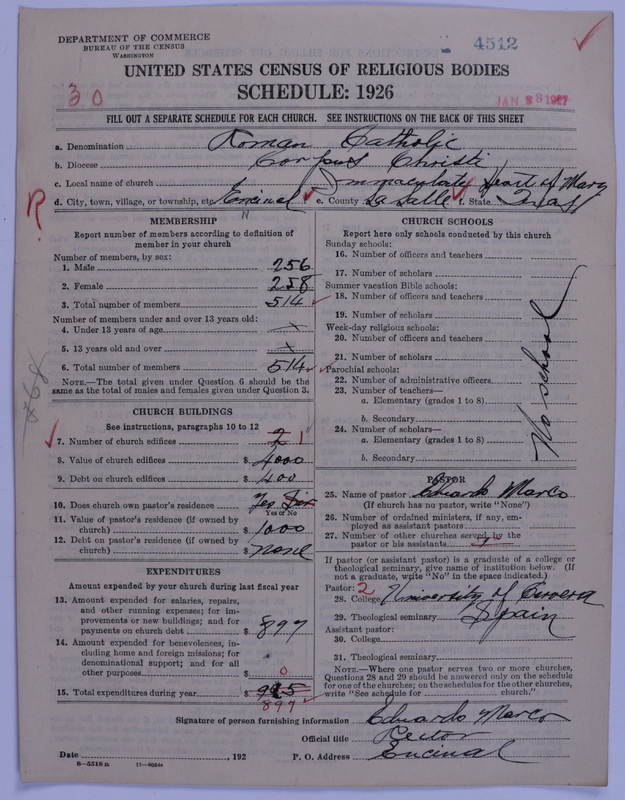 DEPARTMENT OF COMMERCE
BUREAU OF THE CENSUS
WASHINGTON
4512
UNITED STATES CENSUS OF RELIGIOUS BODIES
SCHEDULE: 1926
30
JAN 28 1927
FILL OUT A SEPARATE SCHEDULE FOR EACH CHURCH. SEE INSTRUCTIONS ON THE BACK OF THIS SHEET
a. Denomination Roman Catholic
b. Diocese Corpus Christi
c. Local name of church Immaculate Heart of Mary
d. City, town, village, or township, etc. Encinal e. County La Salle f. State Texas
R
MEMBERSHIP
Report number of members according to definition of
member in your church
Number of members, by sex:
1. Male 256
2. Female 258
3. Total number of members 514
Number of members under and over 13 years old:
4. Under 13 years of age x
5. 13 years old and over x
6. Total number of members 514
NOTE.—The total given under Question 6 should be
same as the total of males and females given under Question 3.
CHURCH BUILDINGS
See instructions, paragraphs 10 to 12
7. Number of church edifices 2 1
8. Value of church edifices $ 4000
9. Debt on church edifices $ 400
10. Does church own pastor's residence Yes
Yes or No
11. Value of pastor's residence (if owned by
church) $ 1000
12. Debt on pastor's residence (if owned by
church) $ None
EXPENDITURES
Amount expended by your church during last fiscal year
13. Amount expended for salaries, repairs,
and other running expenses; for im-
provements or new buildings; and for
payments on church debt $ 897
14. Amount expended for benevolences, in-
cluding home and foreign missions; for
denominational support; and for all
other purposes $ 0
15. Total expenditures during year $ 995
897
CHURCH SCHOOLS
Report here only schools conducted by this church
Sunday schools:
16. Number of officers and teachers
17. Number of scholars
Summer vacation Bible schools:
18. Number of officers and teachers
19. Number of scholars
Week-day religious schools:
20. Number of officers and teachers
21. Number of scholars
Parochial schools:
22. Number of administrative officers
23. Number of teachers—
a. Elementary (grades 1 to 8)
b. Secondary
24. Number of scholars—
a. Elementary (grades 1 to 8)
b. Secondary
No school
PASTOR
25. Name of pastor Eduardo Marco
(If church has no pastor, write "None")
26. Number of ordained ministers, if any, em-
ployed as assistant pastors
27. Number of other churches served by the
pastor or his assistants
If pastor (or assistant pastor) is a graduate of a college or
theological seminary, give name of institution below. (If
not a graduate, write "No" in the space indicated.)
Pastor: 2
28. College University of Cervera
29. Theological seminary Spain
Assistant pastor:
30. College
31. Theological seminary
NOTE.—Where one pastor serves two or more churches,
Questions 28 and 29 should be answered only on the schedule
for one of the churches; on the schedules for the other churches,
write "See schedule for church."
Signature of person furnishing information Eduardo Marco
Official title Rector
Date , 192 P. O. Address Encinal
8—5518 a